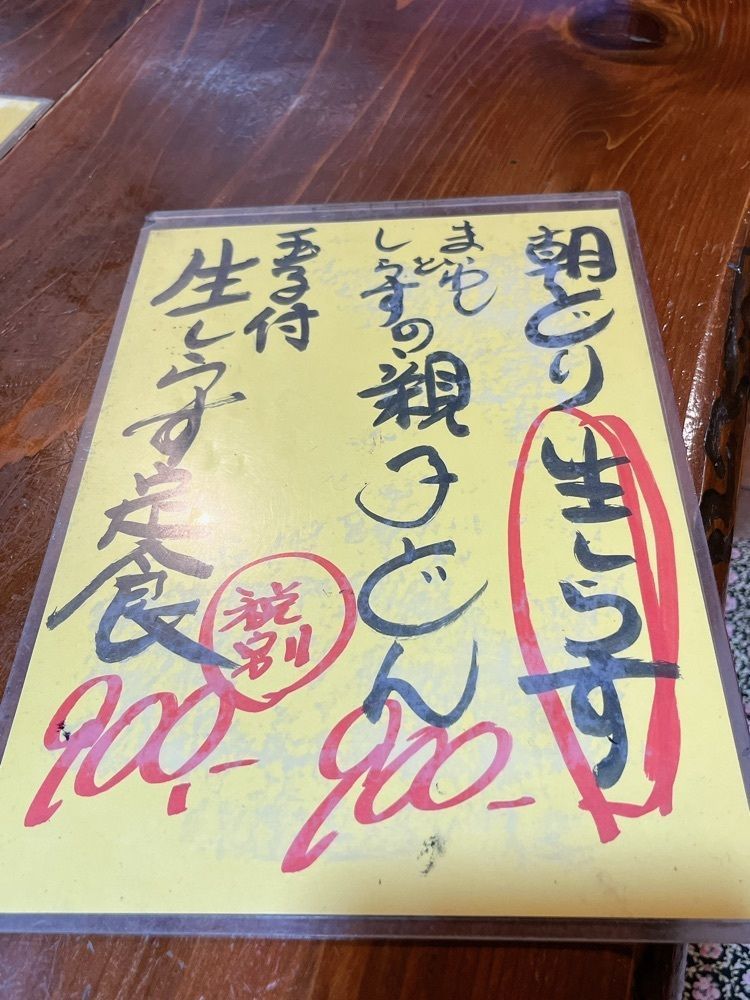 朝どり生しらす
まいわし
と
しらすの親子どん
900-
玉子付
生しらす定食
税別
900,-